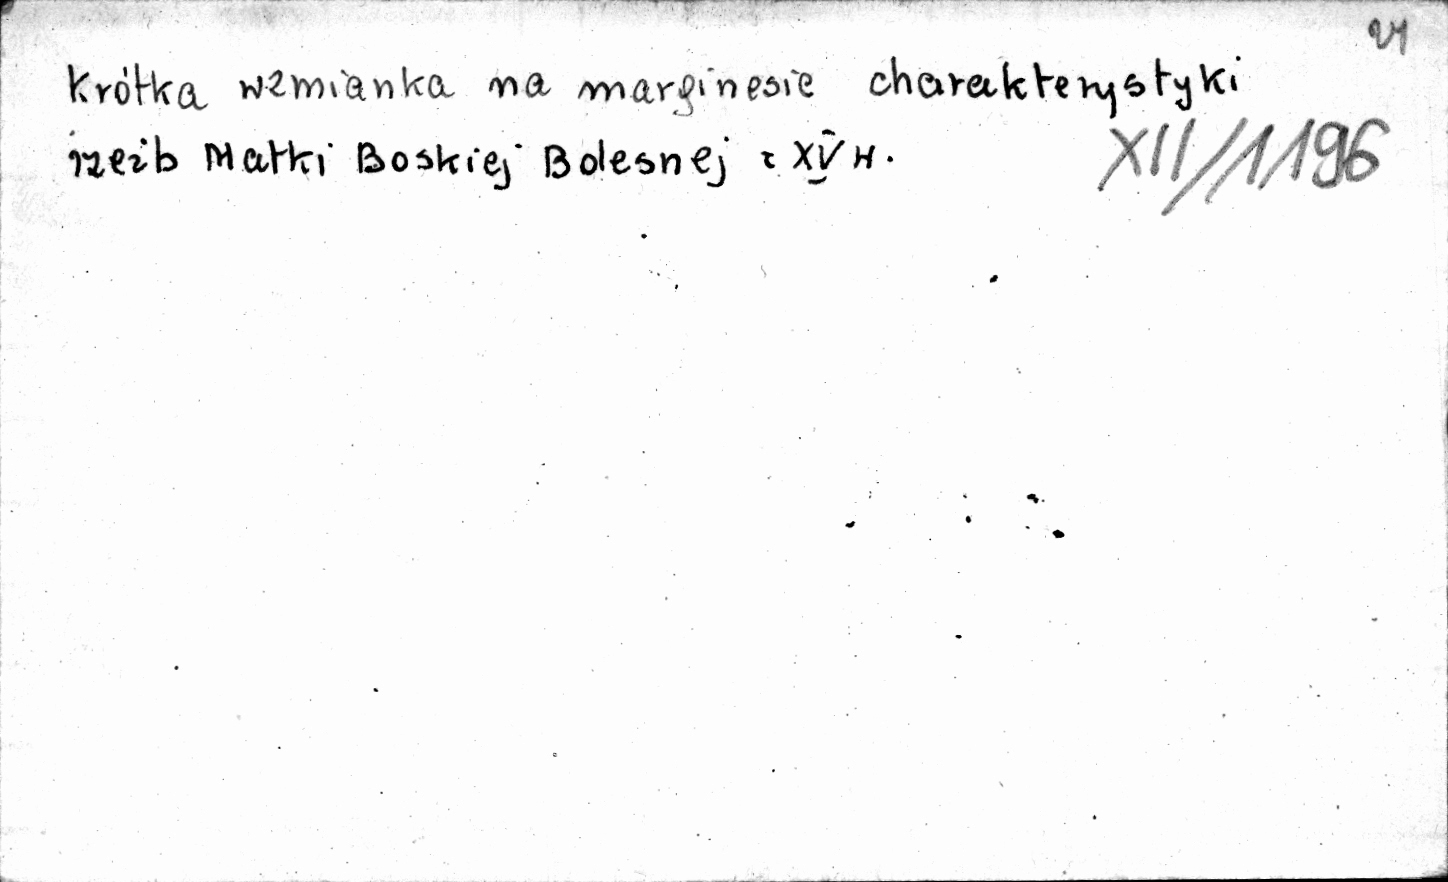 24
Krótka wzmianka na marginesie charakterystyki
rzeźb Matki Boskiej Bolesnej z XV w.
XII/1196